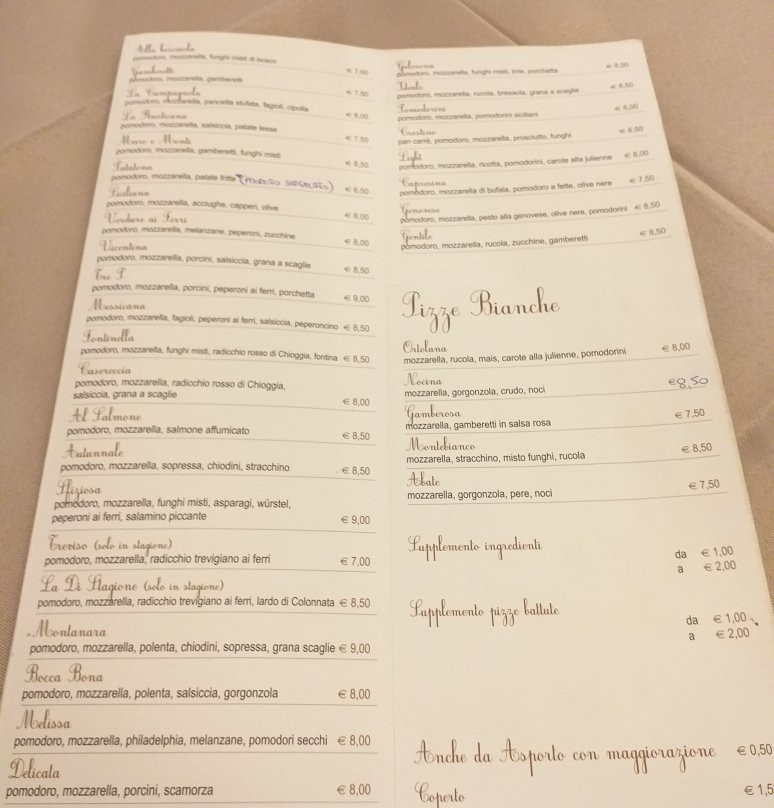 Alla boscaiola
pomodoro, mozzarella, funghi misti di bosco € 7,00
Gamberetti
pomodoro, mozzarella, gamberetti € 7,50
La Campagnola
pomodoro, mozzarella, pancetta stufata, fagioli, cipolla € 8,00
La Rusticana
pomodoro, mozzarella, salsiccia, patate lesse € 7,50
Mare e Monti
pomodoro, mozzarella, gamberetti, funghi misti € 8,50
Patatona
pomodoro, mozzarella, patate fritte (PRODOTTO SURGELATO) € 6,50
Siciliana
pomodoro, mozzarella, acciughe, capperi, olive € 8,00
Verdure ai Ferri
pomodoro, mozzarella, melanzane, peperoni, zucchine € 8,00
Vicentina
pomodoro, mozzarella, porcini, salsiccia, grana a scaglie € 8,50
Tre P
pomodoro, mozzarella, porcini, peperoni ai ferri, porchetta € 9,00
Messicana
pomodoro, mozzarella, fagioli, peperoni ai ferri, salsiccia, peperoncino € 8,50
Fontinella
pomodoro, mozzarella, funghi misti, radicchio rosso di Chioggia, fontina € 8,50
Casereccia
pomodoro, mozzarella, radicchio rosso di Chioggia,
salsiccia, grana a scaglie € 8,00
Al Salmone
pomodoro, mozzarella, salmone affumicato € 8,50
Autunnale
pomodoro, mozzarella, sopressa, chiodini, stracchino € 8,50
Sfiziosa
pomodoro, mozzarella, funghi misti, asparagi, würstel,
peperoni ai ferri, salamino piccante € 9,00
Treviso (solo in stagione)
pomodoro, mozzarella, radicchio trevigiano ai ferri € 7,00
La Di Stagione (solo in stagione)
pomodoro, mozzarella, radicchio trevigiano ai ferri, lardo di Colonnata € 8,50
Montanara
pomodoro, mozzarella, polenta, chiodini, sopressa, grana scaglie € 9,00
Bocca Bona
pomodoro, mozzarella, polenta, salsiccia, gorgonzola € 8,00
Melissa
pomodoro, mozzarella, philadelphia, melanzane, pomodori secchi € 8,00
Delicata
pomodoro, mozzarella, porcini, scamorza € 8,00
Golosona
pomodoro, mozzarella, funghi misti, brie, porchetta € 8,00
Ideale
pomodoro, mozzarella, rucola, bresaola, grana a scaglie € 8,50
Pomodorini
pomodoro, mozzarella, pomodorini siciliani € 6,00
Crostino
pan carrè, pomodoro, mozzarella, prosciutto, funghi € 6,50
Light
pomodoro, mozzarella, ricotta, pomodorini, carote alla julienne € 8,00
Caprosina
pomodoro, mozzarella di bufala, pomodoro a fette, olive nere € 7,50
Genovese
pomodoro, mozzarella, pesto alla genovese, olive nere, pomodorini € 8,50
Gentile
pomodoro, mozzarella, rucola, zucchine, gamberetti € 8,50
Pizze Bianche
Ortolana
mozzarella, rucola, mais, carote alla julienne, pomodorini € 8,00
Nocina
mozzarella, gorgonzola, crudo, noci € 8,50
Gamberosa
mozzarella, gamberetti in salsa rosa € 7,50
Montebianco
mozzarella, stracchino, misto funghi, rucola € 8,50
Abate
mozzarella, gorgonzola, pere, noci € 7,50
Supplemento ingredienti da € 1,00
a € 2,00
Supplemento pizze battute da € 1,00
a € 2,00
Anche da Asporto con maggiorazione € 0,50
Coperto € 1,5